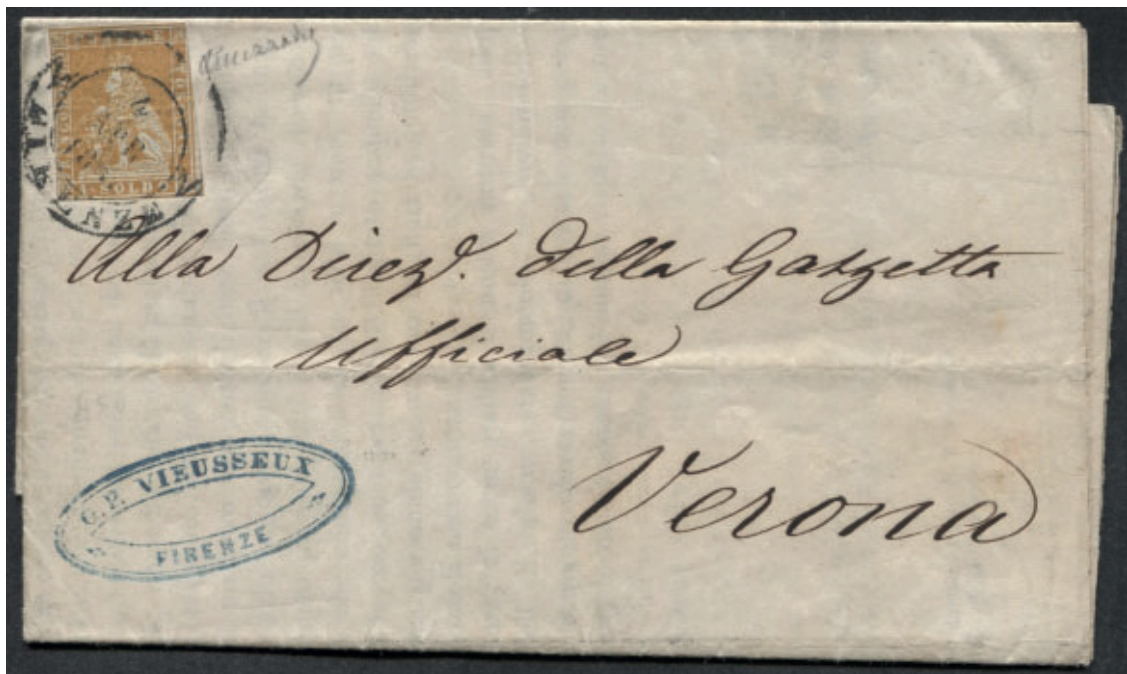 1 SOLDO
FIRENZE
Alla Direz.e della Gazzetta
Ufficiale
Verona
G. P. VIEUSSEUX
FIRENZE